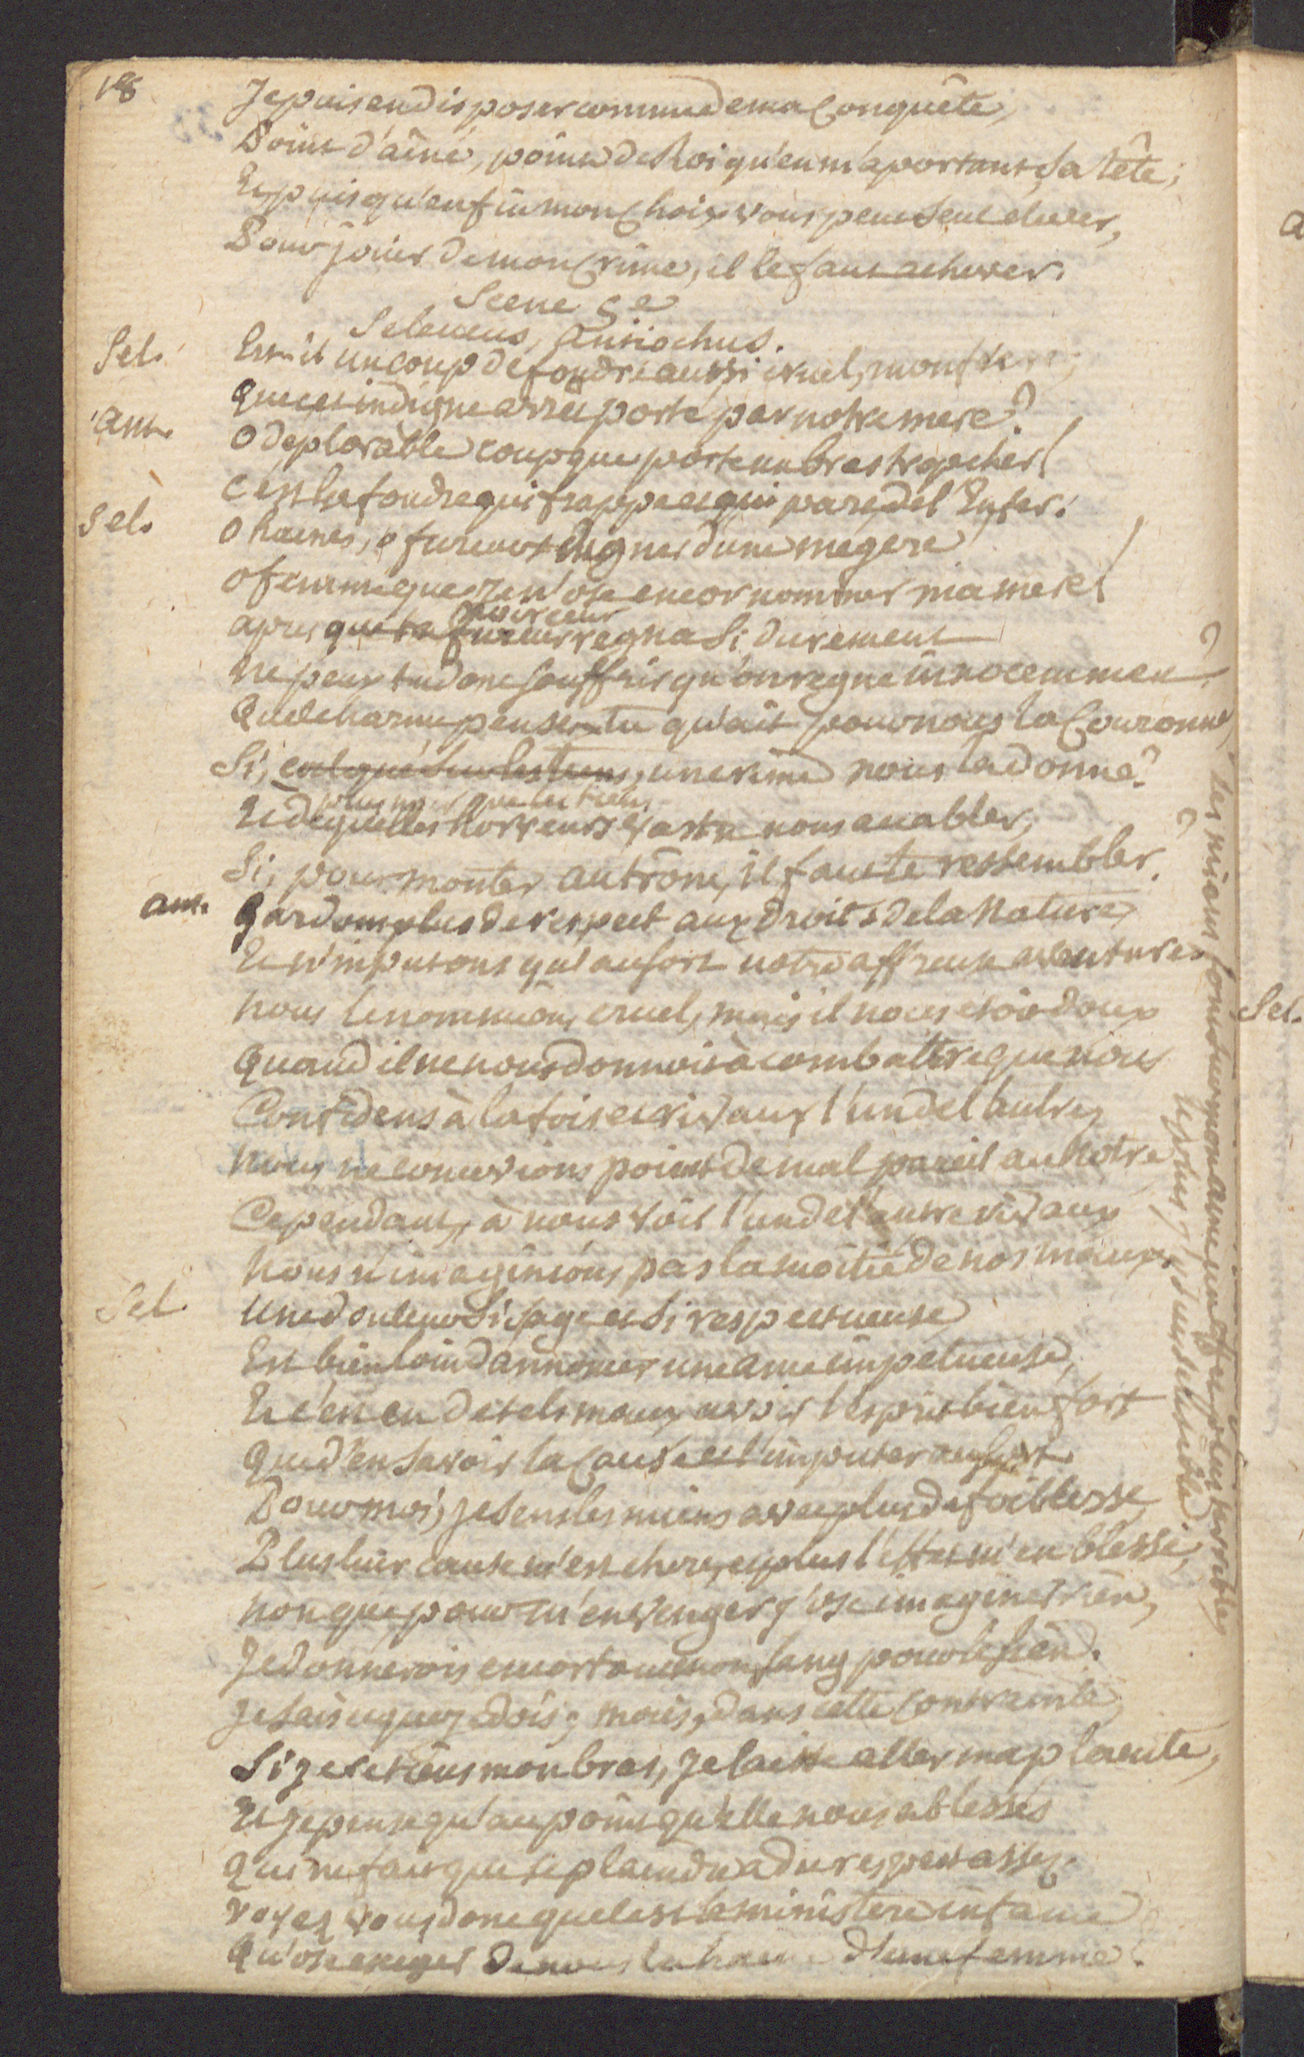 18
Je puis en disposer comme de ma Conquête,
Point d'aîné, point de Roi qu'en m'aportant sa tête;
Et puisqu'enfin mon Choix vous peut seul elever,
Pour jouir de mon Crime, il le faut achever.
Scene 5e
Seleucus, Antiochus.
Sel. Est-il un coup de foudre aussi cruel, mon frere,
Que cet indigne arrêt porté par notre mere?
Ant. O deplorable coup que porte un bras trop cher!
C'est la foudre qui frappe et qui part de l'Enfer.
Sel. O haines, o fureurs dignes d'une megere
O femme que je n'ose encor nommer ma mere!
noirceur
Après que ta fureur regna si durement
Ne peux tu donc souffrir qu'on regne innocemment?
Quel charme penses-tu qu'ait pour nous la Couronne,
Si, calqué sur les tiens, un crime nous la donne?
plus noir que les tiens
Et de quelles horreurs vas tu nous accabler,
Si, pour monter au trône, il faut te ressembler?
Ant. Gardons plus de respect aux droits de la Nature,
Et n'imputons qu'au sort notre affreuse aventure.
Nous le nommions cruel, mais il nous etoit doux
Quand il ne nous donnoit à combattre que nous
Confidens à la fois et rivaux l'un de l'autre,
Nous ne concevions point de mal pareil au notre
Cependant, à nous voir l'un de l'autre rivaux
Nous n'imaginions pas la moitié de nos maux.
Sel. Une douleur si sage et si respectueuse
Est bien loin d'annoncer une ame impetueuse,
Et c'est en de tels maux avoir l'esprit bien fort
Que d'en savoir la Cause et l'imputer au sort
Pour moi, je sens les miens avec plus de foiblesse
Plus leur cause m'est chere, et plus l'effet m'en blesse,
Non que pour m'en venger j'ose imaginer rien,
Je donnerois encor tout mon sang pour le sien.
Je sais ce que je dois; mais, dans cette Contrainte,
Si je retiens mon bras, je laisse aller ma plainte,
Et je pense qu'au point qu'elle nous a blessés
Qui ne fait que se plaindre a du respect assez.
Voyez vous donc quel est le ministere infame
Qu'ose exiger de nous la haine d'une femme?
les miens font sur mon ame un effet plus terrible,
Et plus
Sel.